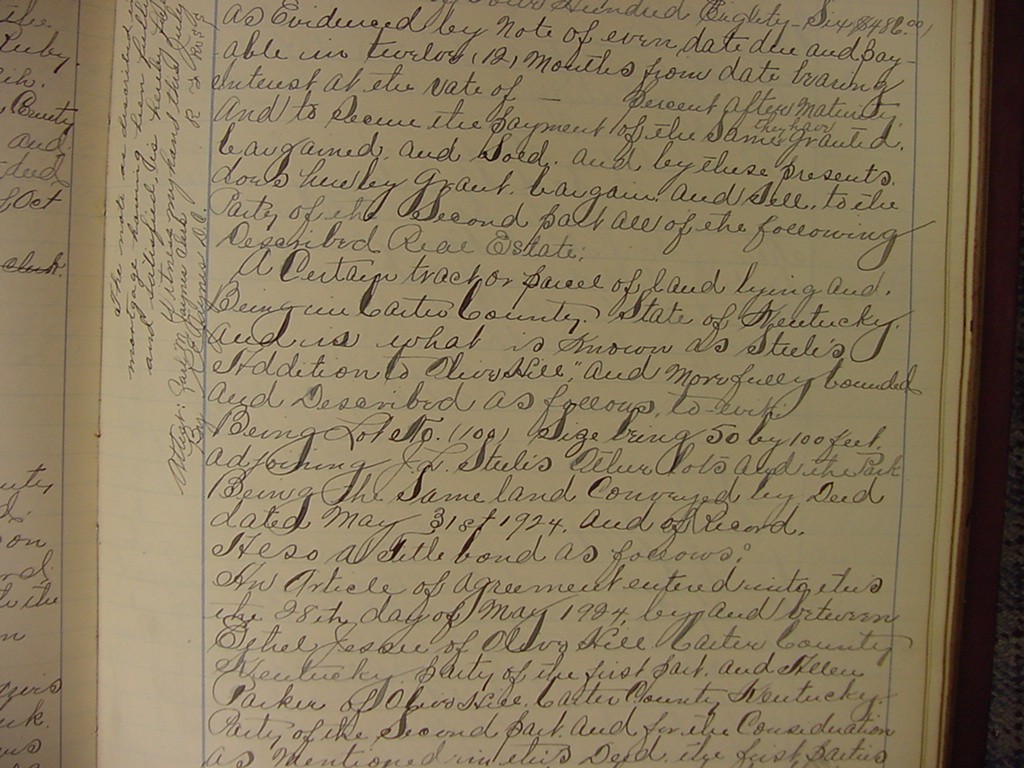 Four Hundred Eighty-Six ($486.00)
as Evidenced by Note of even date due and pay-
able in twelve (12) Months from date bearing
interest at the rate of — Percent after Maturity.
And to secure the payment of the same Granted.
they have
bargained. and Sold. and by these presents.
does hereby Grant. bargain. and Sell. to the
Party of the Second part all of the following
Described Real Estate:
A Certain tract or parcel of land lying and.
Being in Carter County. State of Kentucky.
and is what is Known as Steele's
Addition to Olive Hill," and More fully bounded
and Described as follows, to-wit
Being Lot No. (100) Size being 50 by 100 feet.
adjoining J.L. Steele's Other lots and the Park
Being the Same land Conveyed by Deed
dated May 31st 1924. and of Record.
Also a Title bond as follows:
An Article of agreement entered into this
the 28th day of May 1924, by and between
Ethel Jessee of Olive Hill Carter County
Kentucky party of the first part. and Allen
Parker of Olive Hill. Carter County Kentucky.
Party of the Second part and for the Consideration
as Mentioned in this Deed. the first parties
The note as described in
mortgage having been fully
and satisfied is hereby
Witness my hand this July
Attest:
the
Ruby.
County
and.
Oct
clerk
on
the